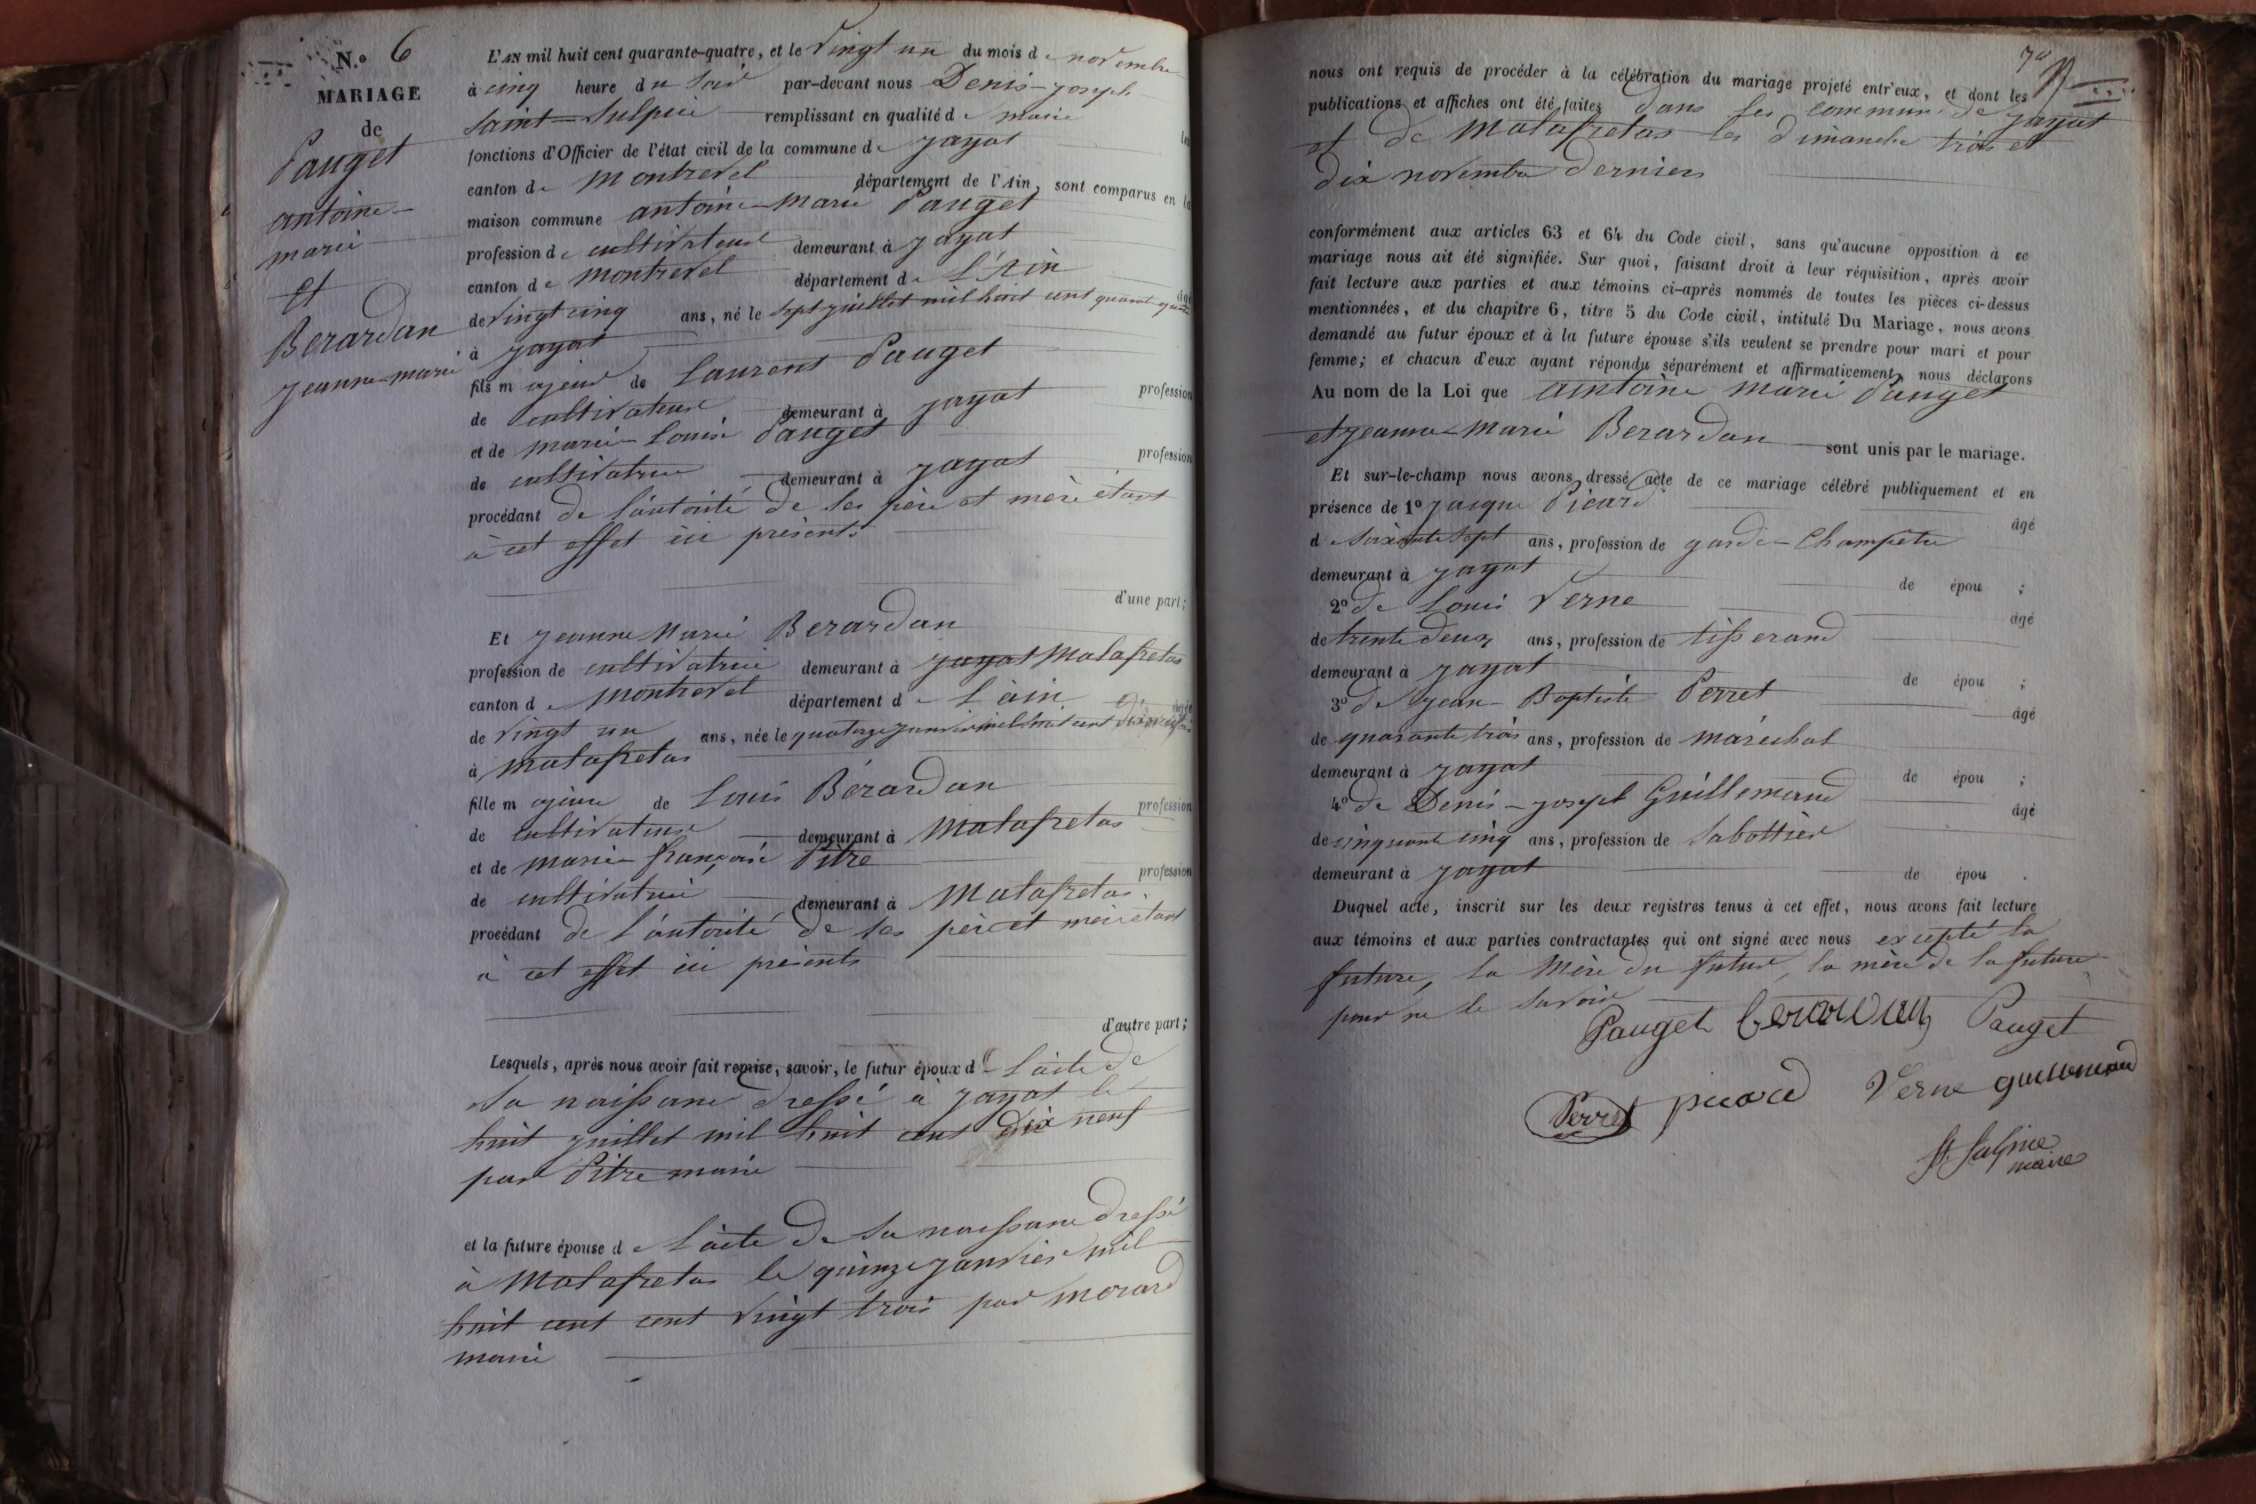 N.o 6
MARIAGE
de
Pauget
antoine-
marie
et
Berardan
jeanne-marie
L'AN mil huit cent quarante-quatre, et le vingt un du mois de novembre
à cinq heure du soir par-devant nous Denis-joseph
Saint-Sulpice remplissant en qualité de maire les
fonctions d'Officier de l'état civil de la commune de jayat
canton de montrevel département de l'Ain, sont comparus en la
maison commune antoine-marie Pauget
profession de cultivateur demeurant à jayat
canton de montrevel département de L'Ain âgé
de vingt cinq ans, né le sept juillet mil huit cent quarante quatre
à jayat
fils majeur de Laurent Pauget profession
de cultivateur demeurant à jayat
et de marie-Louise Pauget profession
de cultivatrice demeurant à jayat
procédant de l'autorité de ses père et mère étant
à cet effet ici présents
d'une part;
Et jeanne Marie Berardan
profession de cultivatrice demeurant à jayat Malafretas
canton de montrevel département de L'ain âgée
de vingt un ans, née le quatorze janvier mil huit cent
à malafretas
fille majeure de Louis Bérardan profession
de cultivateur demeurant à Malafretas
et de marie-françoise Pitre profession
de cultivatrice demeurant à Malafretas
procédant de l'autorité de ses père et mère étant
à cet effet ici présents
d'autre part;
Lesquels, après nous avoir fait remise, savoir, le futur époux de L'acte de
sa naissance dressé à jayat le
huit juillet mil huit cent dix neuf
par Pitre maire
et la future épouse de L'acte de sa naissance dressé
à Malafretas le quinze janvier mil
huit cent cent vingt trois par morard
maire
70
nous ont requis de procéder à la célébration du mariage projeté entr'eux, et dont les
publications et affiches ont été faites dans les commune de jayat
et de Malafretas les dimanche trois et
dix novembre derniers
conformément aux articles 63 et 64 du Code civil, sans qu'aucune opposition à ce
mariage nous ait été signifiée. Sur quoi, faisant droit à leur réquisition, après avoir
fait lecture aux parties et aux témoins ci-après nommés de toutes les pièces ci-dessus
mentionnées, et du chapitre 6, titre 5 du Code civil, intitulé Du Mariage, nous avons
demandé au futur époux et à la future épouse s'ils veulent se prendre pour mari et pour
femme; et chacun d'eux ayant répondu séparément et affirmativement, nous déclarons
Au nom de la Loi que antoine marie Pauget
et jeanne-Marie Berardan sont unis par le mariage.
Et sur-le-champ nous avons dressé acte de ce mariage célébré publiquement et en
présence de 1o jacque Picard âgé
de soixante sept ans, profession de garde-Champetre
demeurant à jayat de épou ;
2o de Louis Verne âgé
de trente deux ans, profession de tisserand
demeurant à jayat de épou ;
3o de jean-Baptiste Perret âgé
de quarante trois ans, profession de maréchal
demeurant à jayat de épou ;
4o de Denis-joseph Guillemaud âgé
de cinquante cinq ans, profession de sabottier
demeurant à jayat de épou .
Duquel acte, inscrit sur les deux registres tenus à cet effet, nous avons fait lecture
aux témoins et aux parties contractantes qui ont signé avec nous excepté la
future, la Mère du futur, la mère de la future
pour ne le savoir
Pauget berardan Pauget
Perret picard Verne guillemaud
St Sulpice
maire